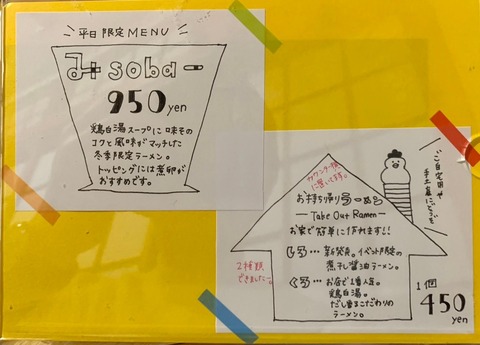 平日限定MENU
みsoba
950yen
鶏白湯スープに味その
コクと風味がマッチした
冬季限定ラーメン。
トッピングには煮卵が
おすすめです。
ご自宅用や
手土産にどうぞ
カウンター横
に置いてます。
お持ち帰りラーメン
—Take Out Ramen—
お家で簡単に作れます!!
しろ…新発売。イベント限定の
煮干し醤油ラーメン。
くろ…お店で1番人気。
鶏白湯。
だし香るこだわりの
ラーメン。
2種類
できました〜。
1個
450
yen